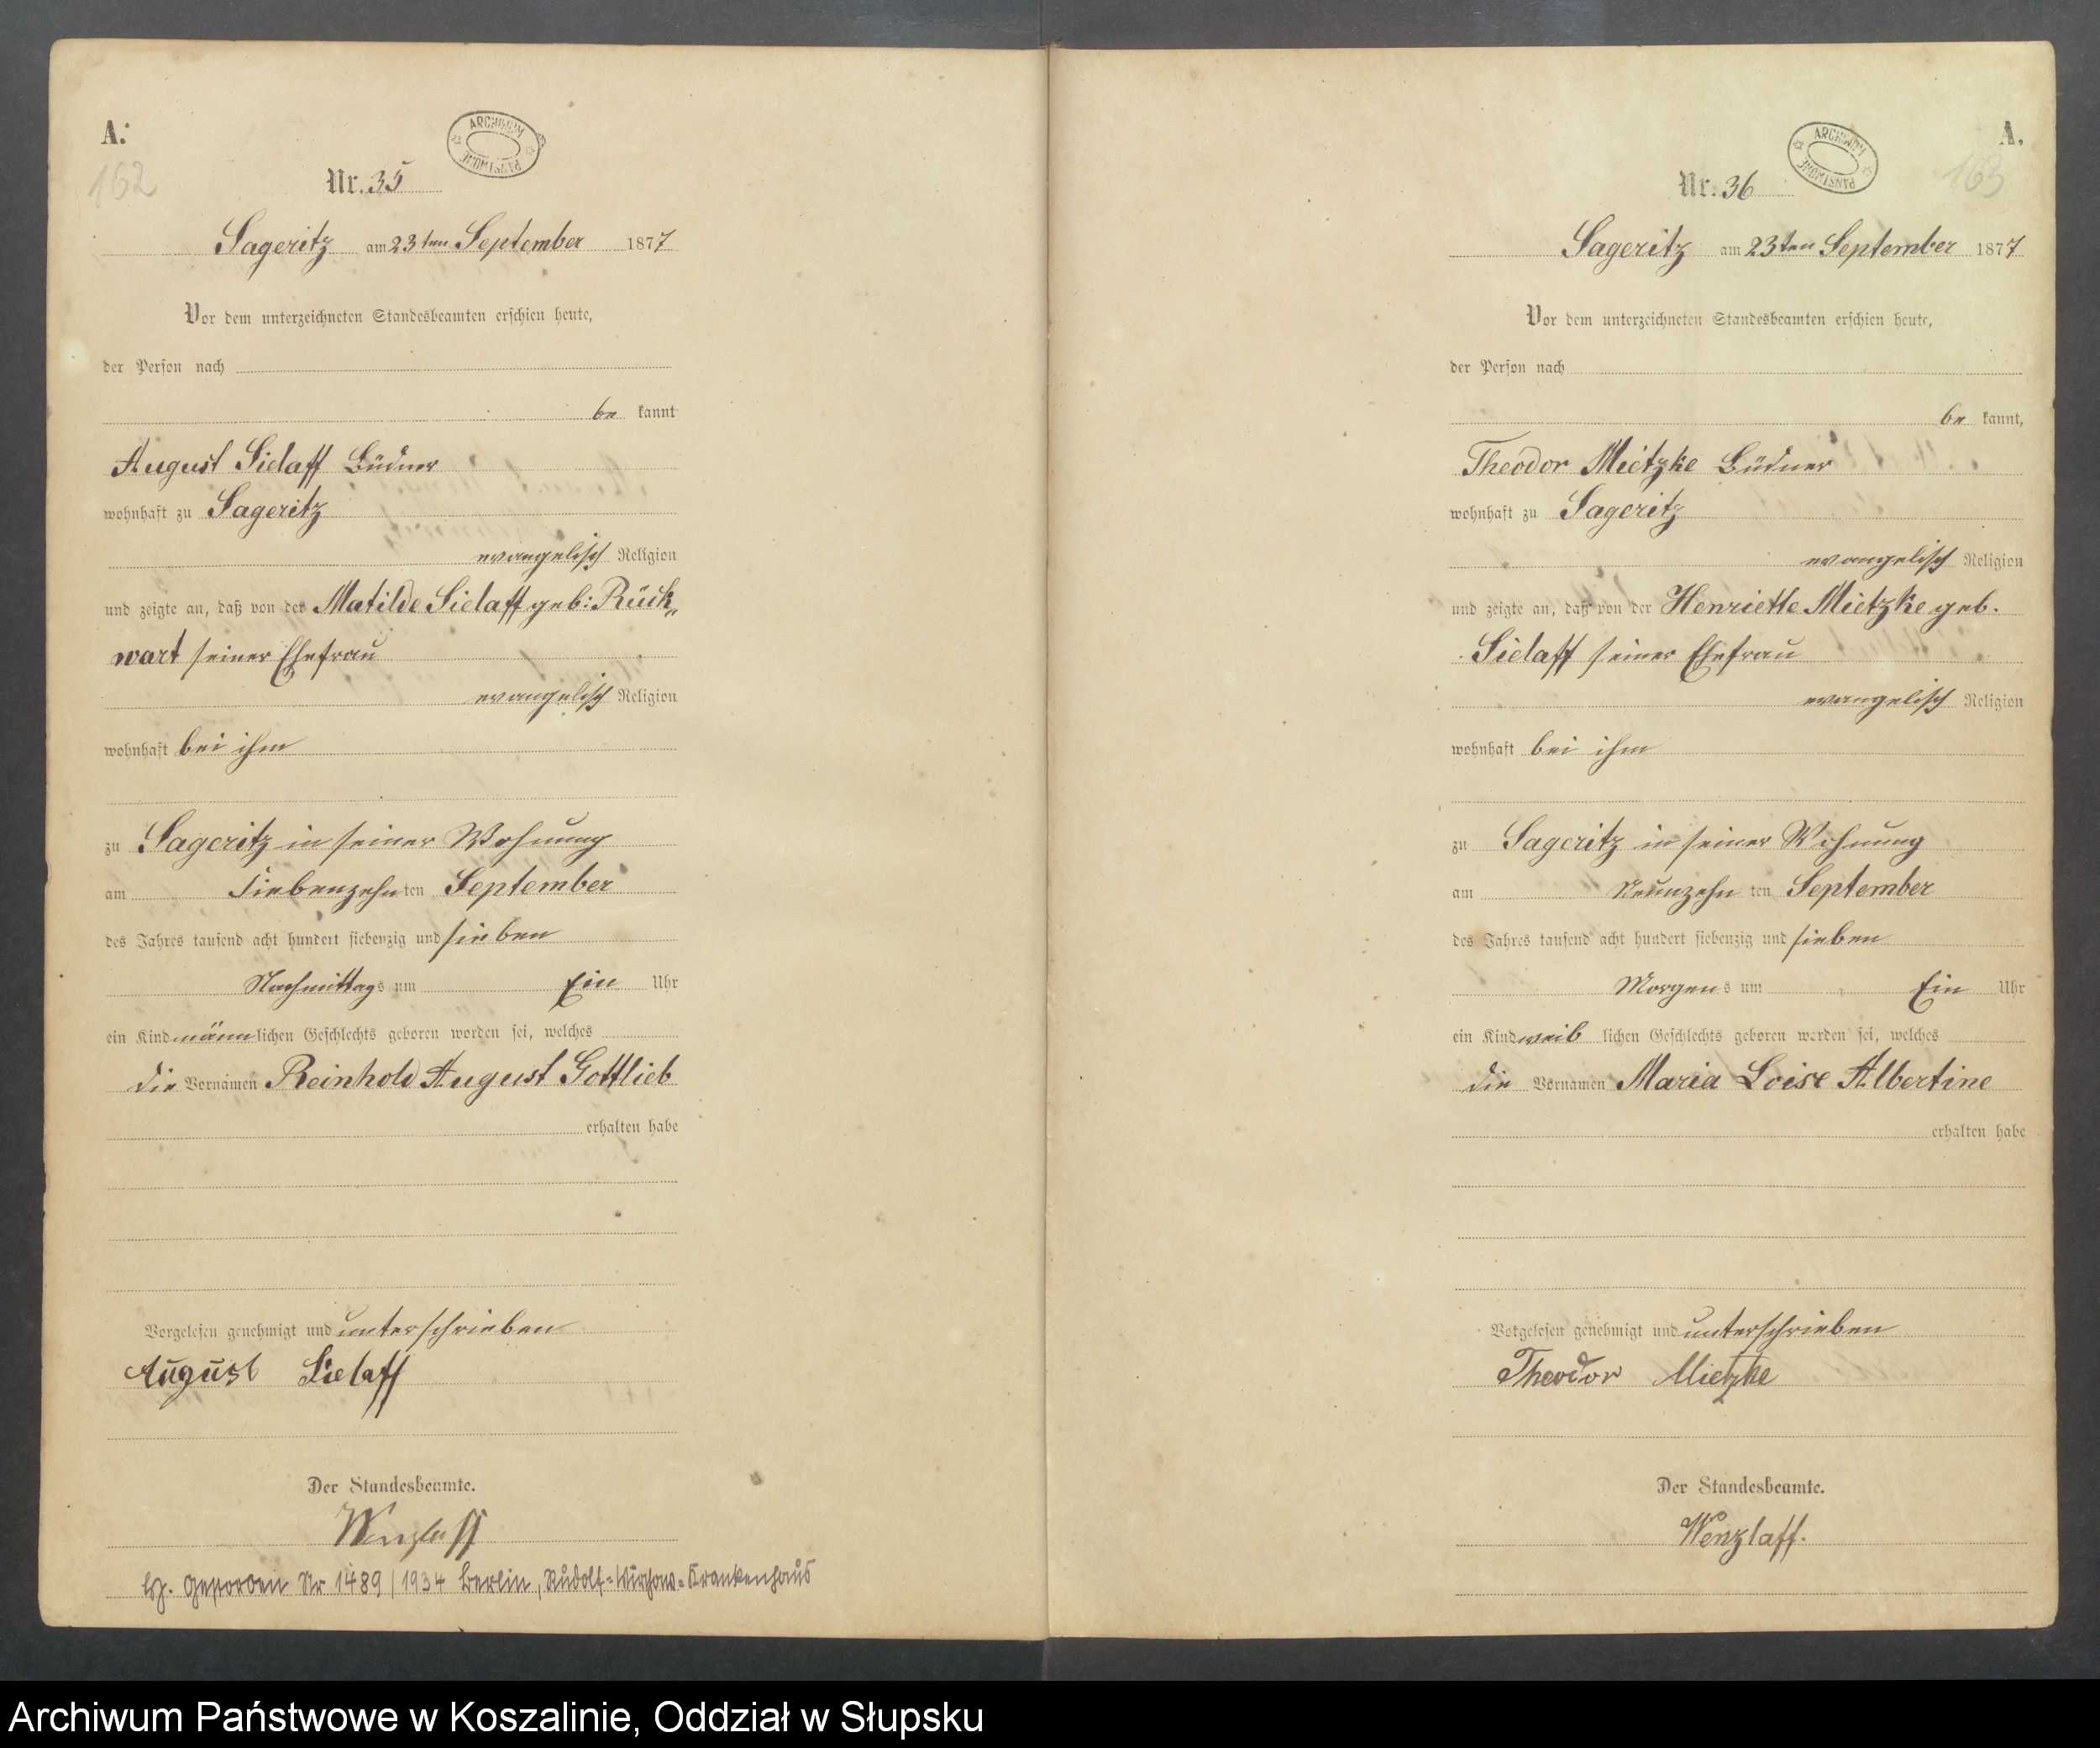 A.
162
ARCHIWUM PAŃSTWOWE
Nr. 35
Sageritz am 23ten September 1877
Vor dem unterzeichneten Standesbeamten erschien heute,
der Person nach
be kannt
August Sielaff Büdner
wohnhaft zu Sageritz
evangelisch Religion
und zeigte an, daß von der Matilde Sielaff geb: Rück„
wart seiner Ehefrau
evangelisch Religion
wohnhaft bei ihm
zu Sageritz in seiner Wohnung
am Siebenzehnten September
des Jahres tausend acht hundert siebenzig und sieben
Nachmittags um Ein Uhr
ein Kind männlichen Geschlechts geboren worden sei, welches
die Vornamen Reinhold August Gottlieb
erhalten habe
Vorgelesen genehmigt und unterschrieben
August Sielaff
Der Standesbeamte.
Wenzlaff
gestorben Nr 1489/1934 Berlin, Rudolf=Virchow=Krankenhaus
A.
163
ARCHIWUM PAŃSTWOWE
Nr. 36
Sageritz am 23ten September 1877
Vor dem unterzeichneten Standesbeamten erschien heute,
der Person nach
be kannt,
Theodor Mietzke Büdner
wohnhaft zu Sageritz
evangelisch Religion
und zeigte an, daß von der Henriette Mietzke geb.
Sielaff seiner Ehefrau
evangelisch Religion
wohnhaft bei ihm
zu Sageritz in seiner Wohnung
am Neunzehn ten September
des Jahres tausend acht hundert siebenzig und sieben
Morgens um Ein Uhr
ein Kind weib lichen Geschlechts geboren worden sei, welches
die Vornamen Maria Loise Albertine
erhalten habe
Vorgelesen genehmigt und unterschrieben
Theodor Mietzke
Der Standesbeamte.
Wenzlaff.
Archiwum Państwowe w Koszalinie, Oddział w Słupsku